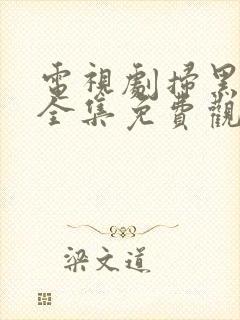 電視劇掃黑
全集免費觀
梁文道